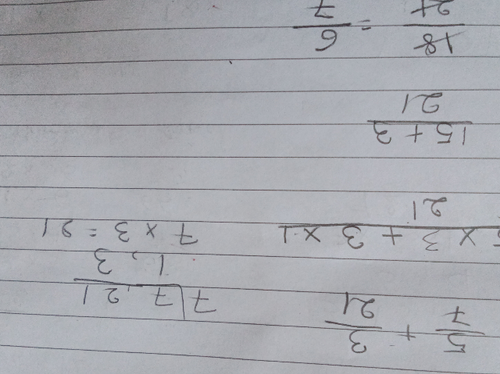 5/7 + 3/21
7 | 7, 21
1, 3
7 × 3 = 21
5 × 3 + 3 × 1
21
15 + 3
21
18/21 = 6/7